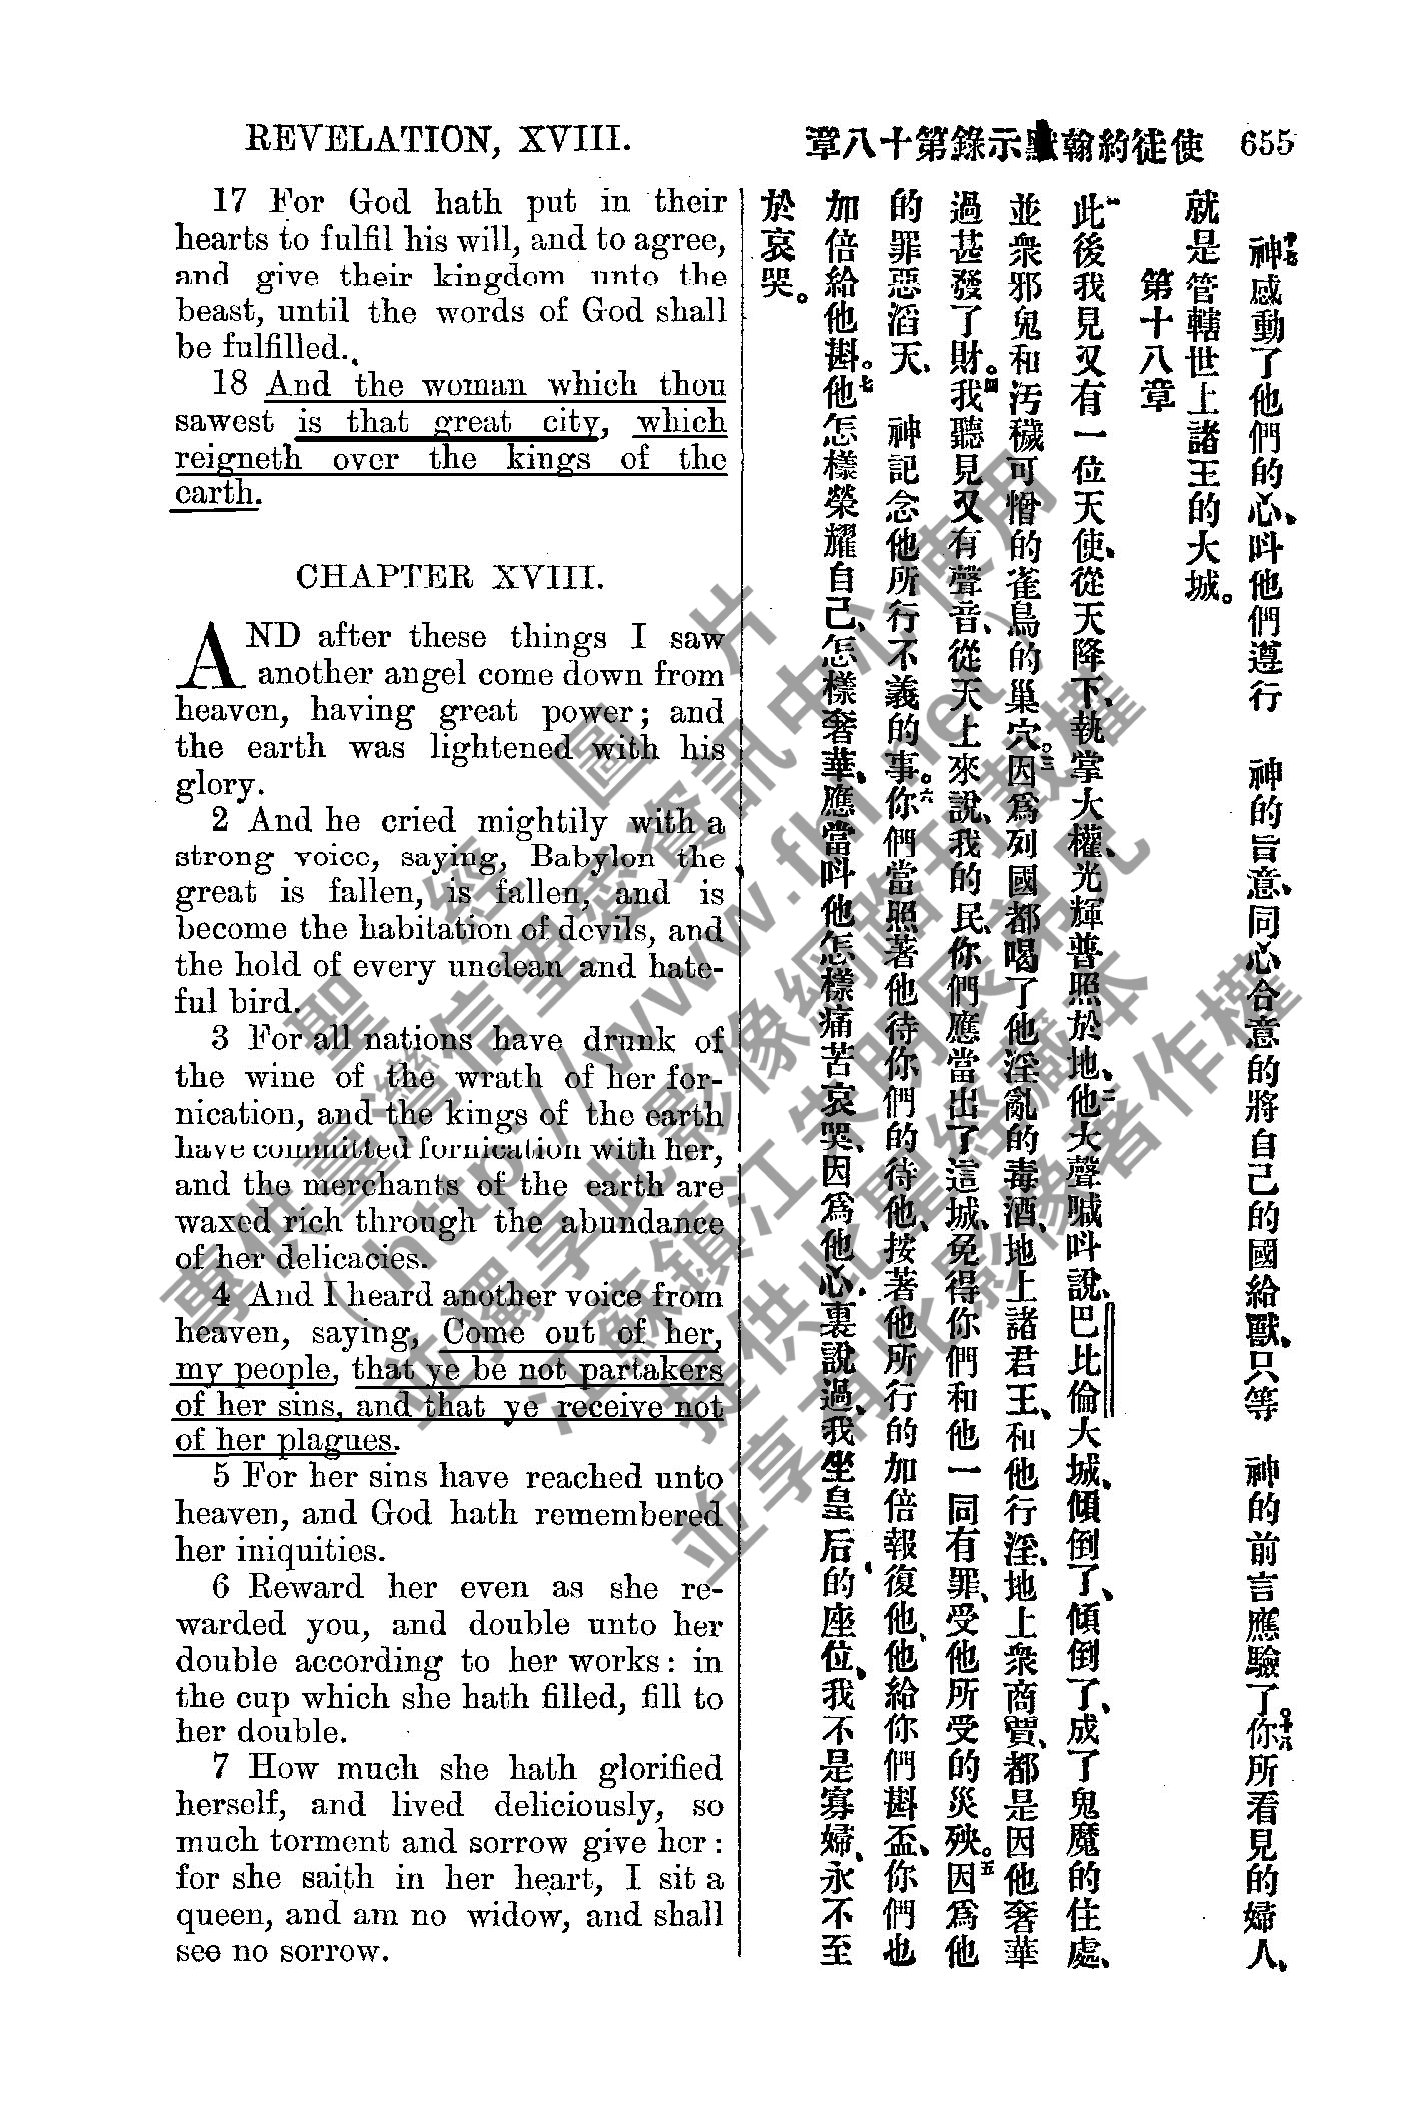 REVELATION, XVIII.
使徒約翰默示錄第十八章 655
17 For God hath put in their
hearts to fulfil his will, and to agree,
and give their kingdom unto the
beast, until the words of God shall
be fulfilled.
18 And the woman which thou
sawest is that great city, which
reigneth over the kings of the
earth.
CHAPTER XVIII.
AND after these things I saw
another angel come down from
heaven, having great power; and
the earth was lightened with his
glory.
2 And he cried mightily with a
strong voice, saying, Babylon the
great is fallen, is fallen, and is
become the habitation of devils, and
the hold of every unclean and hate-
ful bird.
3 For all nations have drunk of
the wine of the wrath of her for-
nication, and the kings of the earth
have committed fornication with her,
and the merchants of the earth are
waxed rich through the abundance
of her delicacies.
4 And I heard another voice from
heaven, saying, Come out of her,
my people, that ye be not partakers
of her sins, and that ye receive not
of her plagues.
5 For her sins have reached unto
heaven, and God hath remembered
her iniquities.
6 Reward her even as she re-
warded you, and double unto her
double according to her works: in
the cup which she hath filled, fill to
her double.
7 How much she hath glorified
herself, and lived deliciously, so
much torment and sorrow give her:
for she saith in her heart, I sit a
queen, and am no widow, and shall
see no sorrow.
十七神感動了他們的心、呌他們遵行 神的旨意、同心合意的將自己的國給獸、只等 神的前言應驗了。十八你所看見的婦人、
就是管轄世上諸王的大城。
第十八章
一此後我見又有一位天使、從天降下、執掌大權、光輝普照於地、二他大聲喊呌說、巴比倫大城、傾倒了、傾倒了、成了鬼魔的住處、
並衆邪鬼和汚穢可憎的雀鳥的巢穴。三因爲列國都喝了他淫亂的毒酒、地上諸君王、和他行淫、地上衆商賈、都是因他奢華
過甚發了財。四我聽見又有聲音、從天上來說、我的民、你們應當出了這城、免得你們和他一同有罪、受他所受的災殃。五因爲他
的罪惡滔天、 神記念他所行不義的事。六你們當照著他待你們的待他、按著他所行的加倍報復他、他給你們斟盃、你們也
加倍給他斟。七他怎樣榮耀自己、怎樣奢華、應當呌他怎樣痛苦哀哭、因爲他心裏說過、我坐皇后的座位、我不是寡婦、永不至
於哀哭。
聖經圖片
專供臺灣信望愛資訊中心使用
( http://www.fhl.net )
並獨享此影像網路刊載權
江蘇鎮江朱明辰弟兄
提供此聖經藏本
並享有此影像著作權